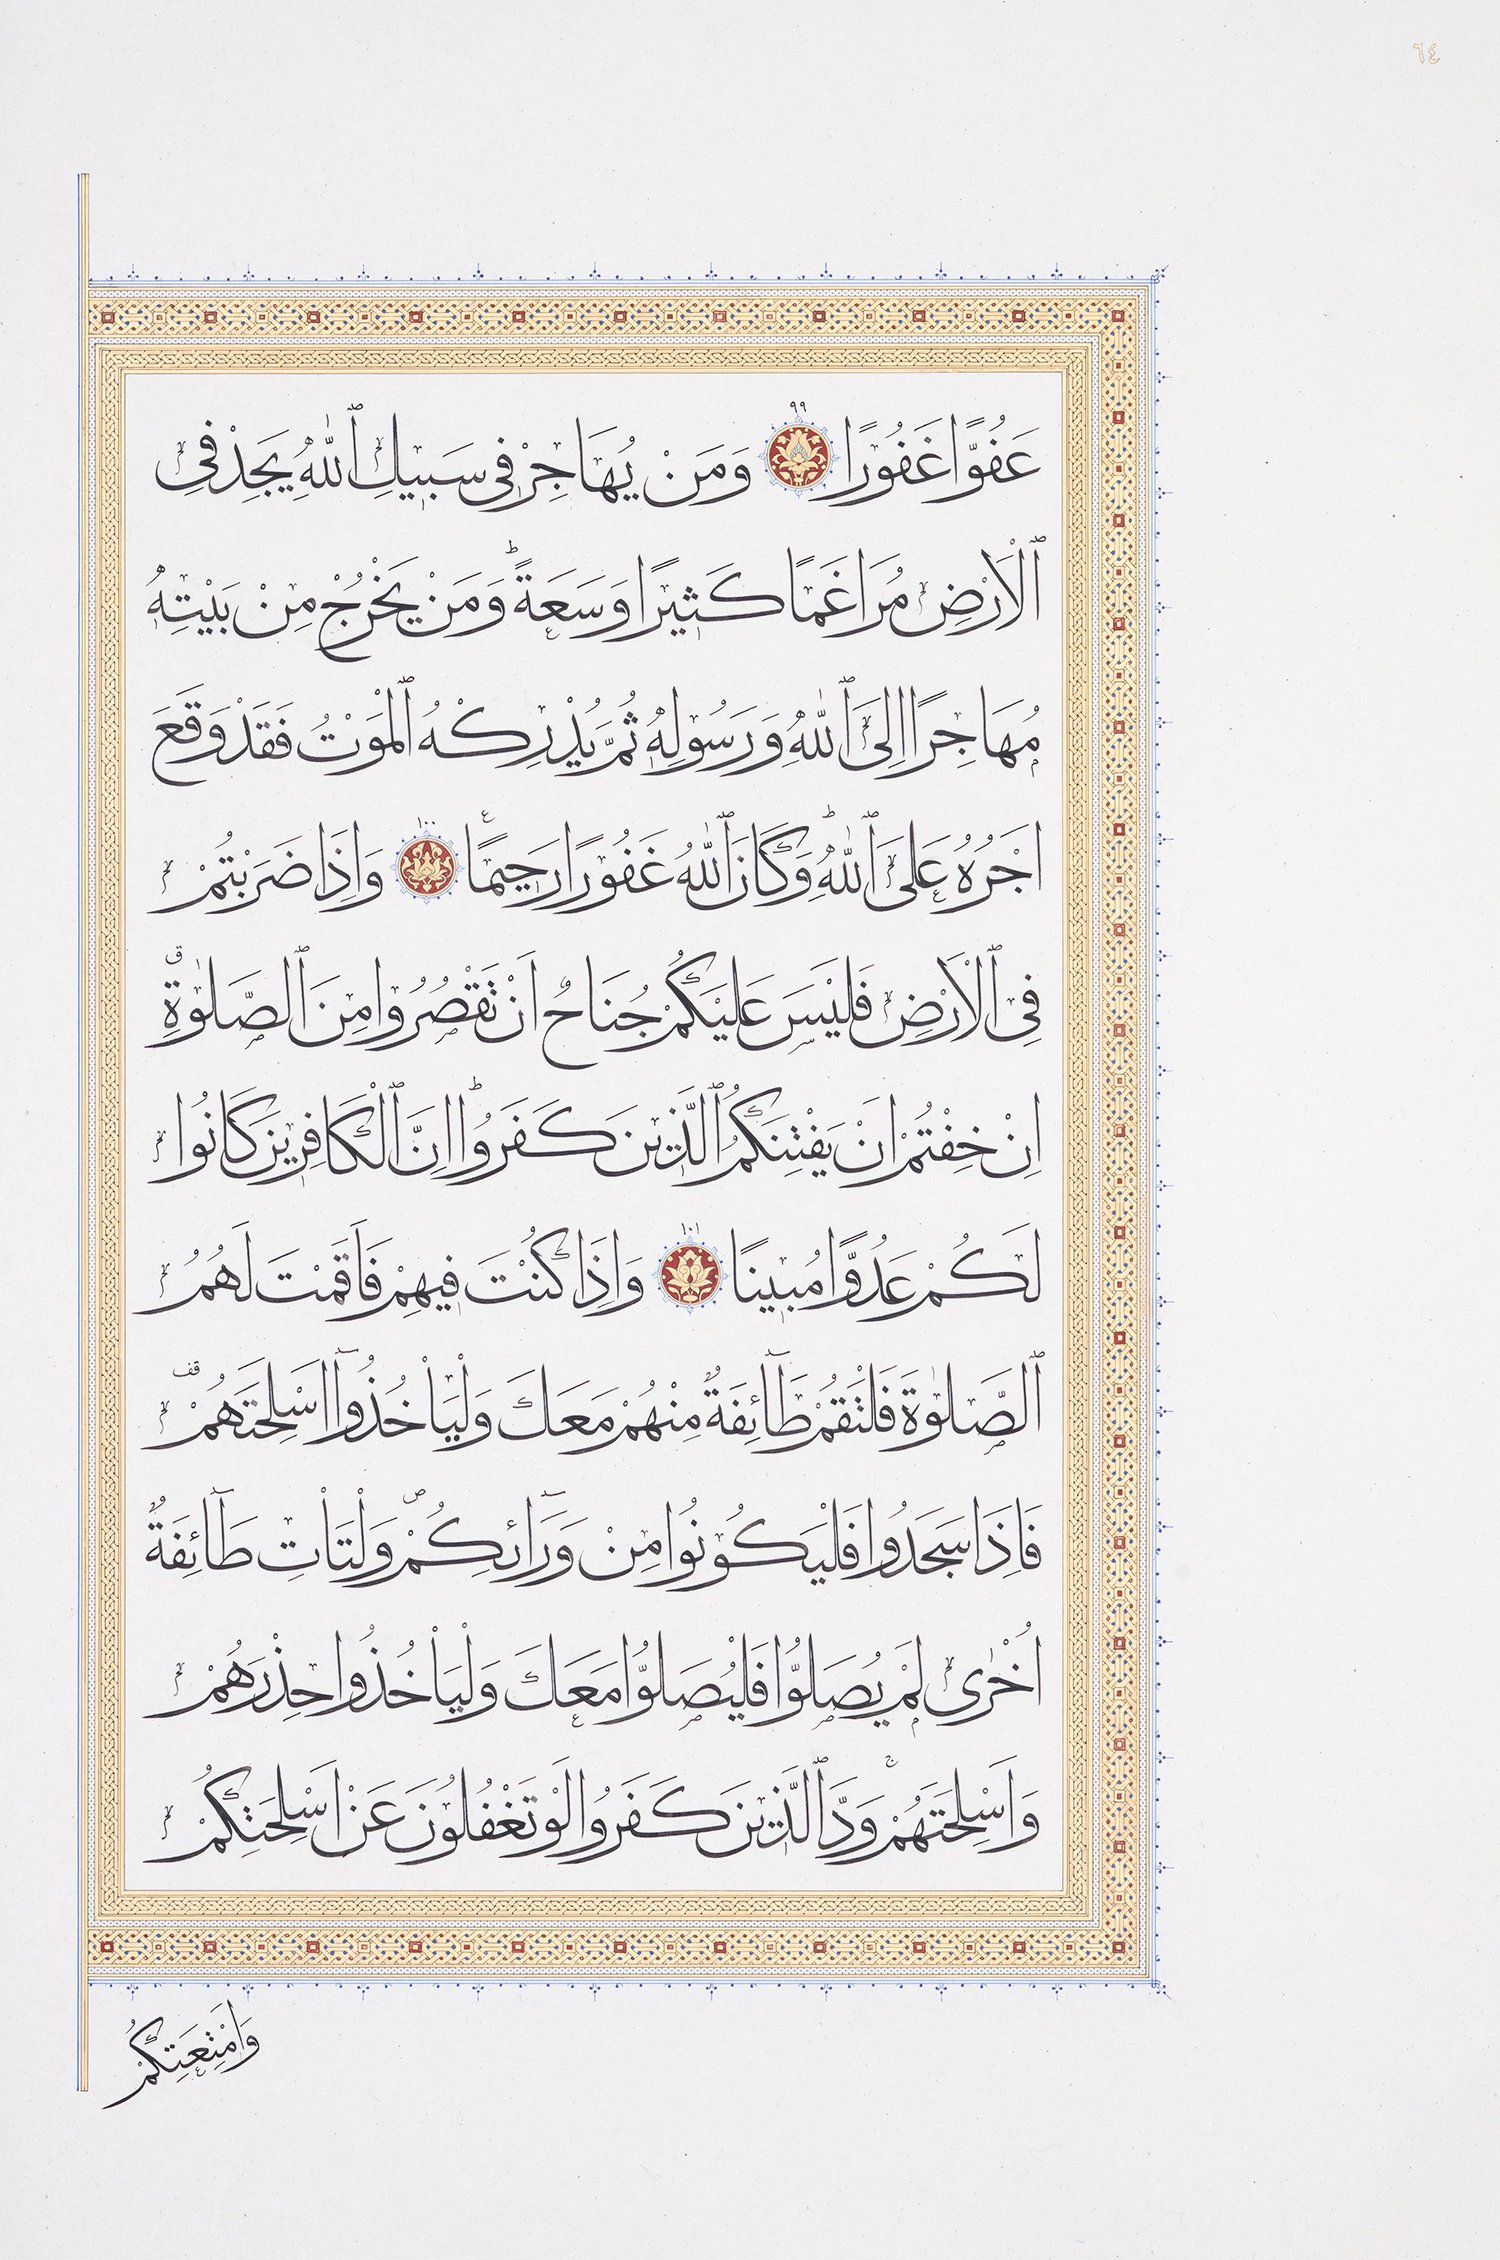 ٦٤
عَفُوًّا غَفُورًا ٩٩ وَمَنْ يُهَاجِرْ فِي سَبِيلِ ٱللّٰهِ يَجِدْ فِي
ٱلْاَرْضِ مُرَاغَمًا كَثِيرًا وَسَعَةًۜ وَمَنْ يَخْرُجْ مِنْ بَيْتِهِ
مُهَاجِرًا اِلَى ٱللّٰهِ وَرَسُولِهِ ثُمَّ يُدْرِكْهُ ٱلْمَوْتُ فَقَدْ وَقَعَ
اَجْرُهُ عَلَى ٱللّٰهِۜ وَكَانَ ٱللّٰهُ غَفُورًا رَحِيمًا ع ١٠٠ وَاِذَا ضَرَبْتُمْ
فِي ٱلْاَرْضِ فَلَيْسَ عَلَيْكُمْ جُنَاحٌ اَنْ تَقْصُرُوا مِنَ ٱلصَّلٰوةِۗ
اِنْ خِفْتُمْ اَنْ يَفْتِنَكُمُ ٱلَّذِينَ كَفَرُواۜ اِنَّ ٱلْكَافِرِينَ كَانُوا
لَكُمْ عَدُوًّا مُبِينًا ١٠١ وَاِذَا كُنْتَ فِيهِمْ فَاَقَمْتَ لَهُمُ
ٱلصَّلٰوةَ فَلْتَقُمْ طَآئِفَةٌ مِنْهُمْ مَعَكَ وَلْيَاْخُذُوٓا اَسْلِحَتَهُمْ قف
فَاِذَا سَجَدُوا فَلْيَكُونُوا مِنْ وَرَٓائِكُمْۖ وَلْتَاْتِ طَآئِفَةٌ
اُخْرٰى لَمْ يُصَلُّوا فَلْيُصَلُّوا مَعَكَ وَلْيَاْخُذُوا حِذْرَهُمْ
وَاَسْلِحَتَهُمْۚ وَدَّ ٱلَّذِينَ كَفَرُوا لَوْ تَغْفُلُونَ عَنْ اَسْلِحَتِكُمْ
وَاَمْتِعَتِكُمْ